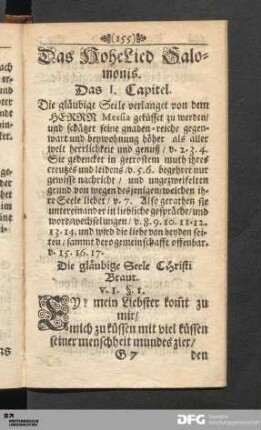 (155)
Das HoheLied Salo-
monis.
Das 1. Capitel.
Die gläubige Seele verlanget von dem
HERRN Messia geküsset zu werden/
und schätzet seine gnaden-reiche gegen-
wart und beywohnung höher als aller
welt herrlichkeit und genuß / v. 2. 3. 4.
Sie gedencket in getrostem muth ihres
creutzes und leidens / v. 5. 6. begehret nur
gewisse nachricht / und ungezweifelten
grund von wegen desjenigen / welchen ih-
re Seele liebet / v. 7. Also gerathen sie
untereinander in liebliche gespräche / und
wort-wechselungen / v. 8. 9. 10. 11. 12.
13. 14. und wird die liebe von beyden sei-
ten / sammt dero gemeinschafft offenbar.
v. 15. 16. 17.
Die gläubige Seele CHristi
Braut.
v. 1. §. 1.
mein Liebster komt zu
mir /
mich zu küssen mit viel küssen
seiner menschheit mundes zier /
G 7 den
DFG
Deutsche
Forschungsgemeinschaft